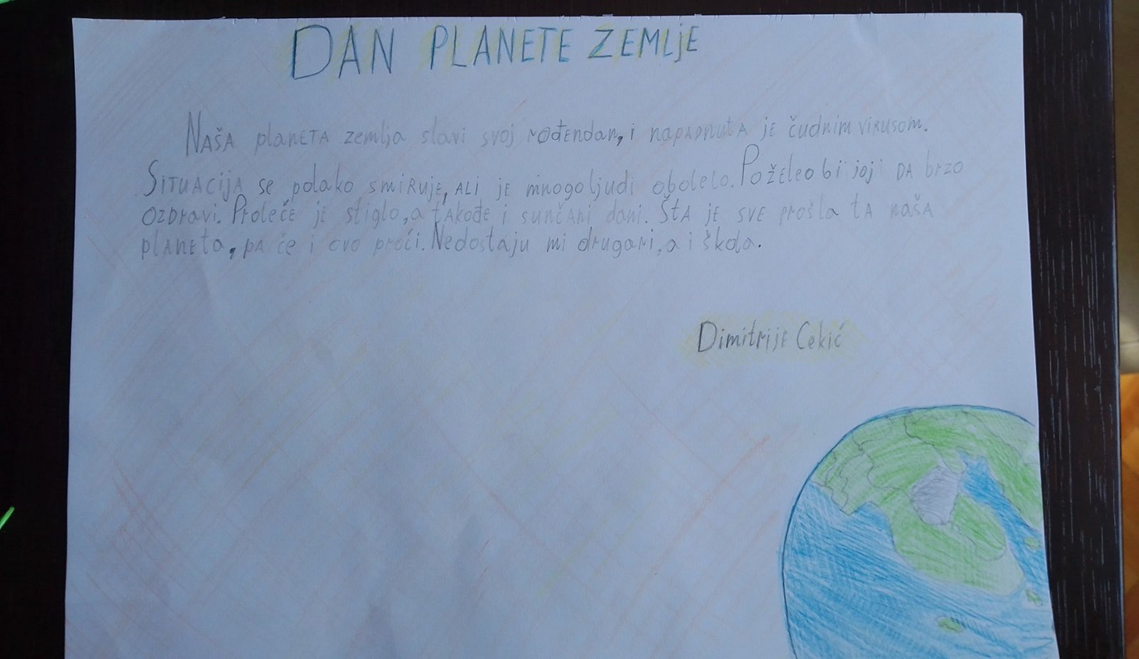 DAN PLANETE ZEMLJE
Naša planeta zemlja slavi svoj rođendan, i napadnuta je čudnim virusom.
Situacija se polako smiruje, ali je mnogo ljudi obolelo. Poželeo bi joj da brzo
ozdravi. Proleće je stiglo, a takođe i sunčani dani. Šta je sve prošla ta naša
planeta, pa će i ovo proći. Nedostaju mi drugari, a i škola.
Dimitrije Cekić